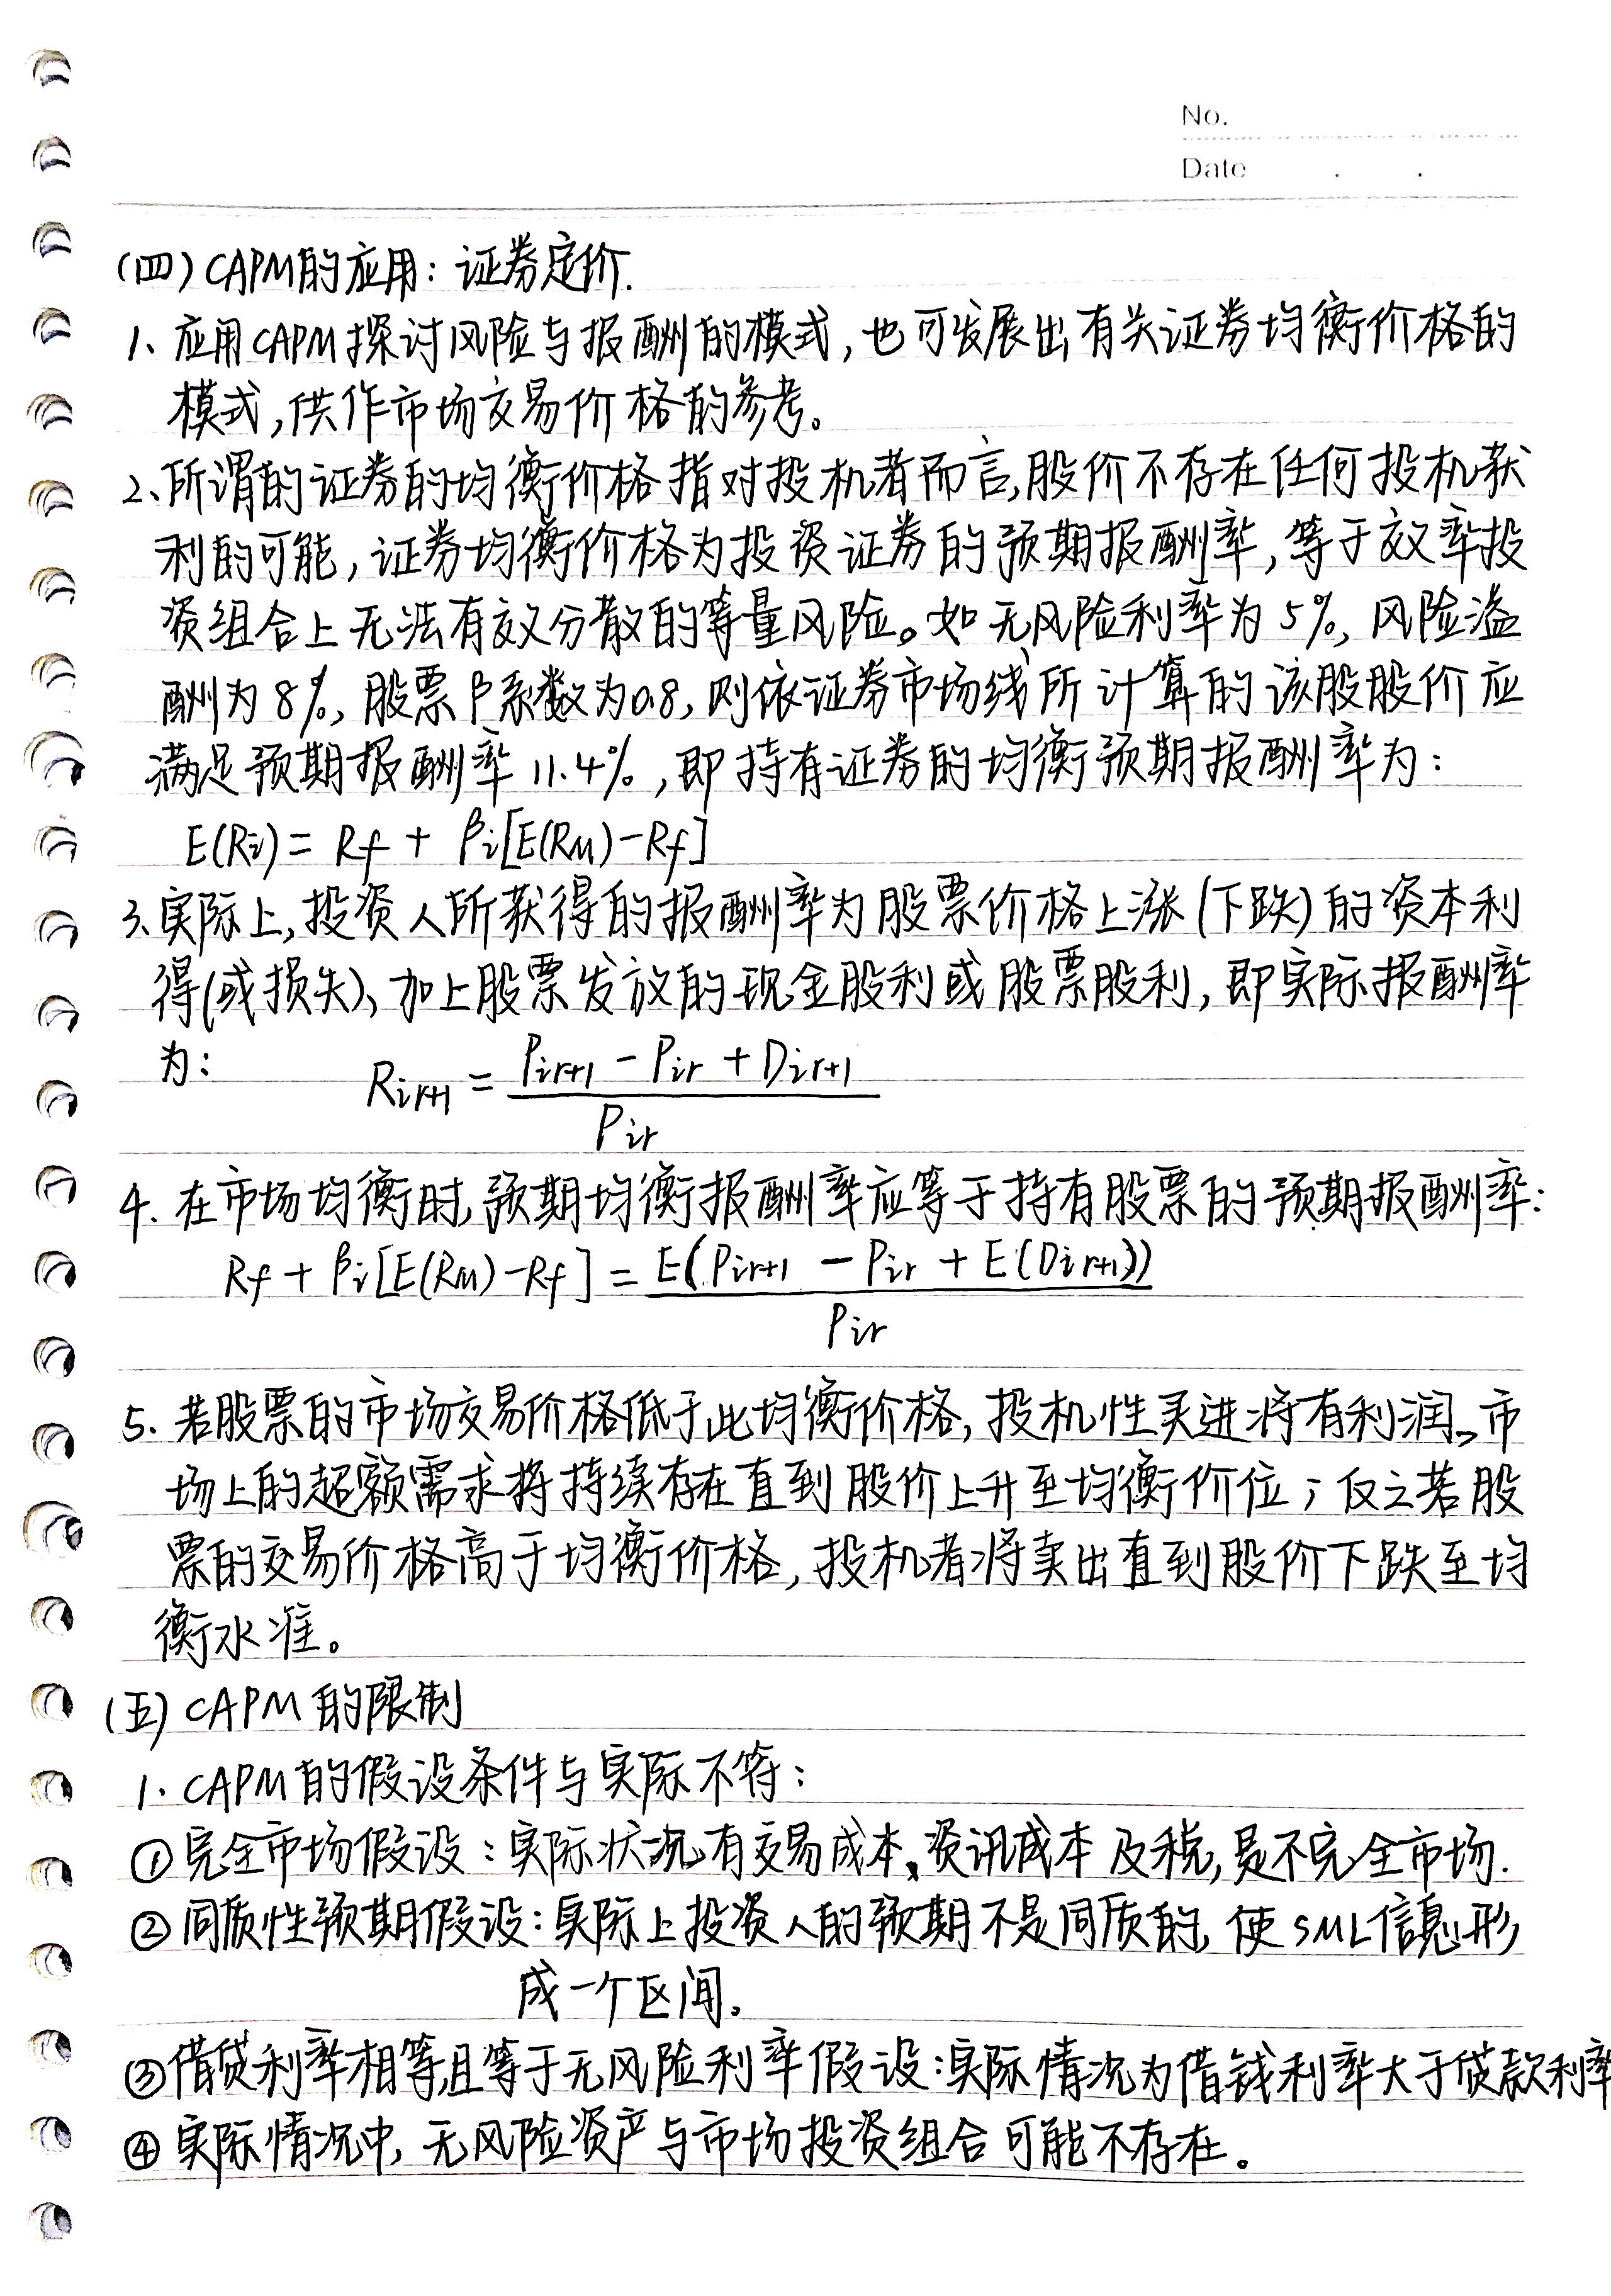 No.
Date . .
(四) CAPM的应用：证券定价.
1、应用CAPM探讨风险与报酬的模式，也可发展出有关证券均衡价格的
模式，供作市场交易价格的参考。
2、所谓的证券的均衡价格指对投机者而言,股价不存在任何投机获
利的可能，证券均衡价格为投资证券的预期报酬率，等于效率投
资组合上无法有效分散的等量风险。如无风险利率为5%，风险溢
酬为8%，股票β系数为0.8，则依证券市场线所计算的该股股价应
满足预期报酬率11.4%，即持有证券的均衡预期报酬率为：
E(Ri) = Rf + βi[E(RM)-Rf]
3、实际上，投资人所获得的报酬率为股票价格上涨(下跌)的资本利
得(或损失)、加上股票发放的现金股利或股票股利，即实际报酬率
为：
Rir+1 = (Pir+1 - Pir + Dir+1) / Pir
4. 在市场均衡时,预期均衡报酬率应等于持有股票的预期报酬率：
Rf + βi[E(RM)-Rf] = E(Pir+1 - Pir + E(Dir+1)) / Pir
5. 若股票的市场交易价格低于此均衡价格，投机性买进将有利润，市
场上的超额需求将持续存在直到股价上升至均衡价位；反之若股
票的交易价格高于均衡价格，投机者将卖出直到股价下跌至均
衡水准。
(五) CAPM的限制
1. CAPM的假设条件与实际不符：
①完全市场假设：实际状况有交易成本、资讯成本及税，是不完全市场.
②同质性预期假设：实际上投资人的预期不是同质的，使SML信息形
成一个区间。
③借贷利率相等,且等于无风险利率假设：实际情况为借钱利率大于贷款利率
④实际情况中，无风险资产与市场投资组合可能不存在。